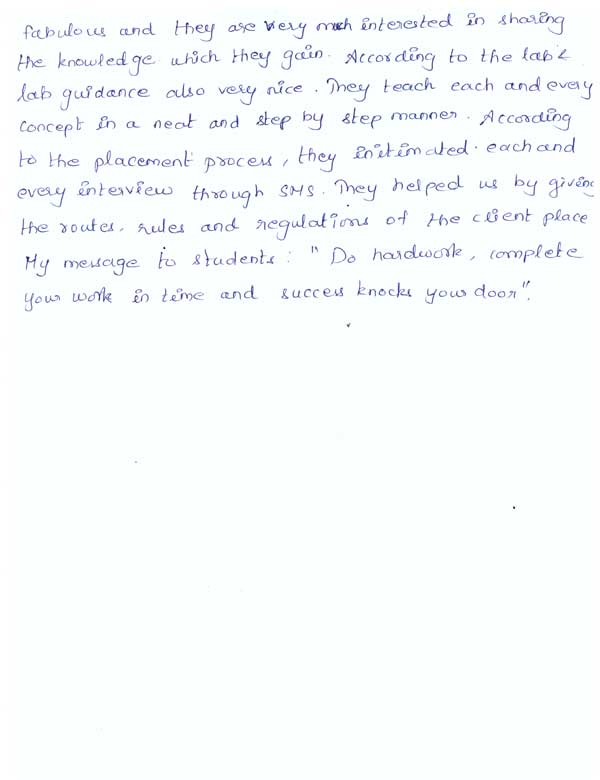 fabulous and they are very much interested in sharing
the knowledge which they gain. According to the lab &
lab guidance also very nice. They teach each and every
concept in a neat and step by step manner. According
to the placement process, they initimated. each and
every interview through SMS. They helped us by giving
the routes, rules and regulations of the client place
My message to students: "Do hardwork, complete
your work in time and success knocks your door".